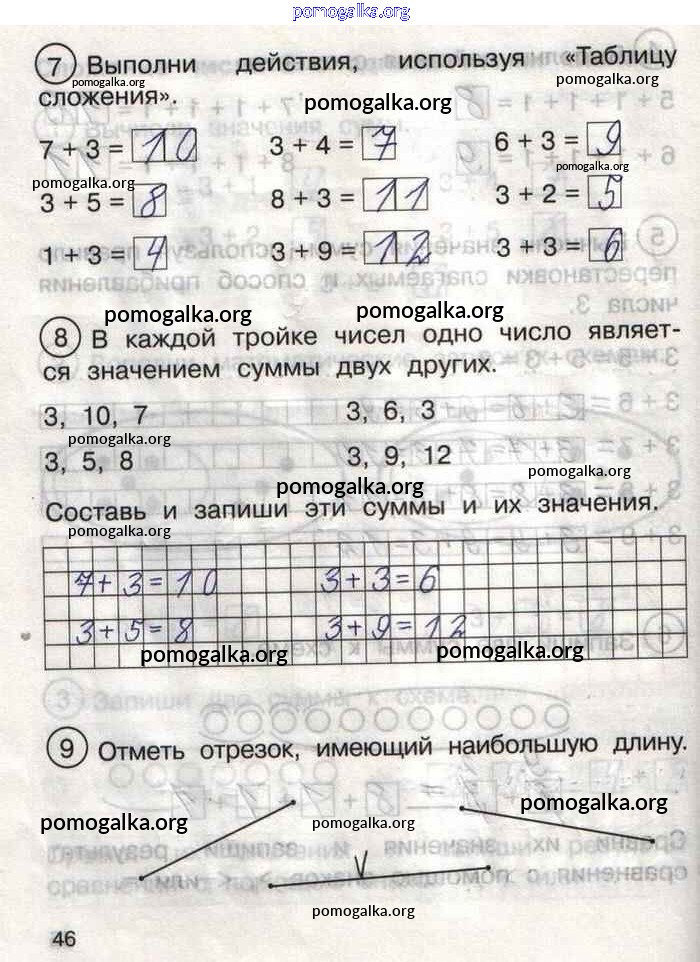 pomogalka.org
7 Выполни действия, используя «Таблицу
pomogalka.org
сложения».
pomogalka.org
7 + 3 = 10 3 + 4 = 7 6 + 3 = 9
pomogalka.org pomogalka.org
3 + 5 = 8 8 + 3 = 11 3 + 2 = 5
1 + 3 = 4 3 + 9 = 12 3 + 3 = 6
pomogalka.org pomogalka.org
8 В каждой тройке чисел одно число являет-
ся значением суммы двух других.
3, 10, 7 3, 6, 3
pomogalka.org
3, 5, 8 3, 9, 12
pomogalka.org
pomogalka.org
Составь и запиши эти суммы и их значения.
pomogalka.org
7 + 3 = 10 3 + 3 = 6
3 + 5 = 8 3 + 9 = 12
pomogalka.org pomogalka.org
9 Отметь отрезок, имеющий наибольшую длину.
pomogalka.org pomogalka.org pomogalka.org
V
pomogalka.org
46